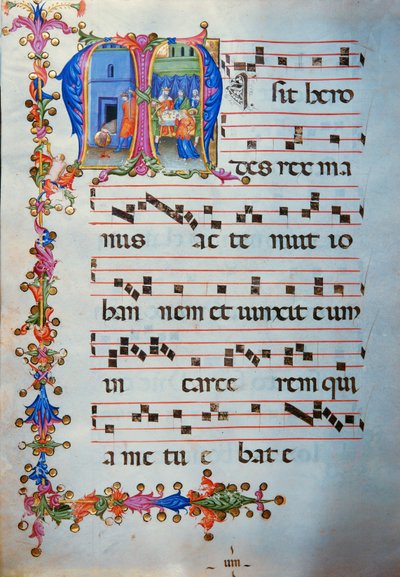 MI sit hero
des rex ma
nus ac te nuit io
han nem et vinxit eum
in carce rem qui
a me tu e bat e